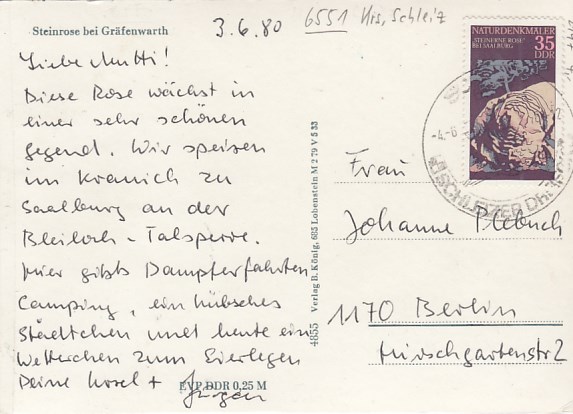 Steinrose bei Gräfenwarth
3.6.80
6551 Krs. Schleiz
NATURDENKMÄLER
"STEINERNE ROSE"
BEI SAALBURG
35
DDR
Liebe Mutti!
Diese Rose wächst in
einer sehr schönen
gegend. Wir speisen
im Kranich zu
Saalburg an der
Bleiloch-Talsperre.
Hier gibts Dampferfahrten
Camping, ein hübsches
Städtchen und heute ein
Wetterchen zum Eierlegen
Deine Ursel + Jürgen
EVP DDR 0,25 M
4855 Verlag R. König, 685 Lobenstein M 2 79 V 5 33
-4.-6
SCHLEIZER
Frau
Johanne Plebuch
1170 Berlin
Hirschgartenstr 2